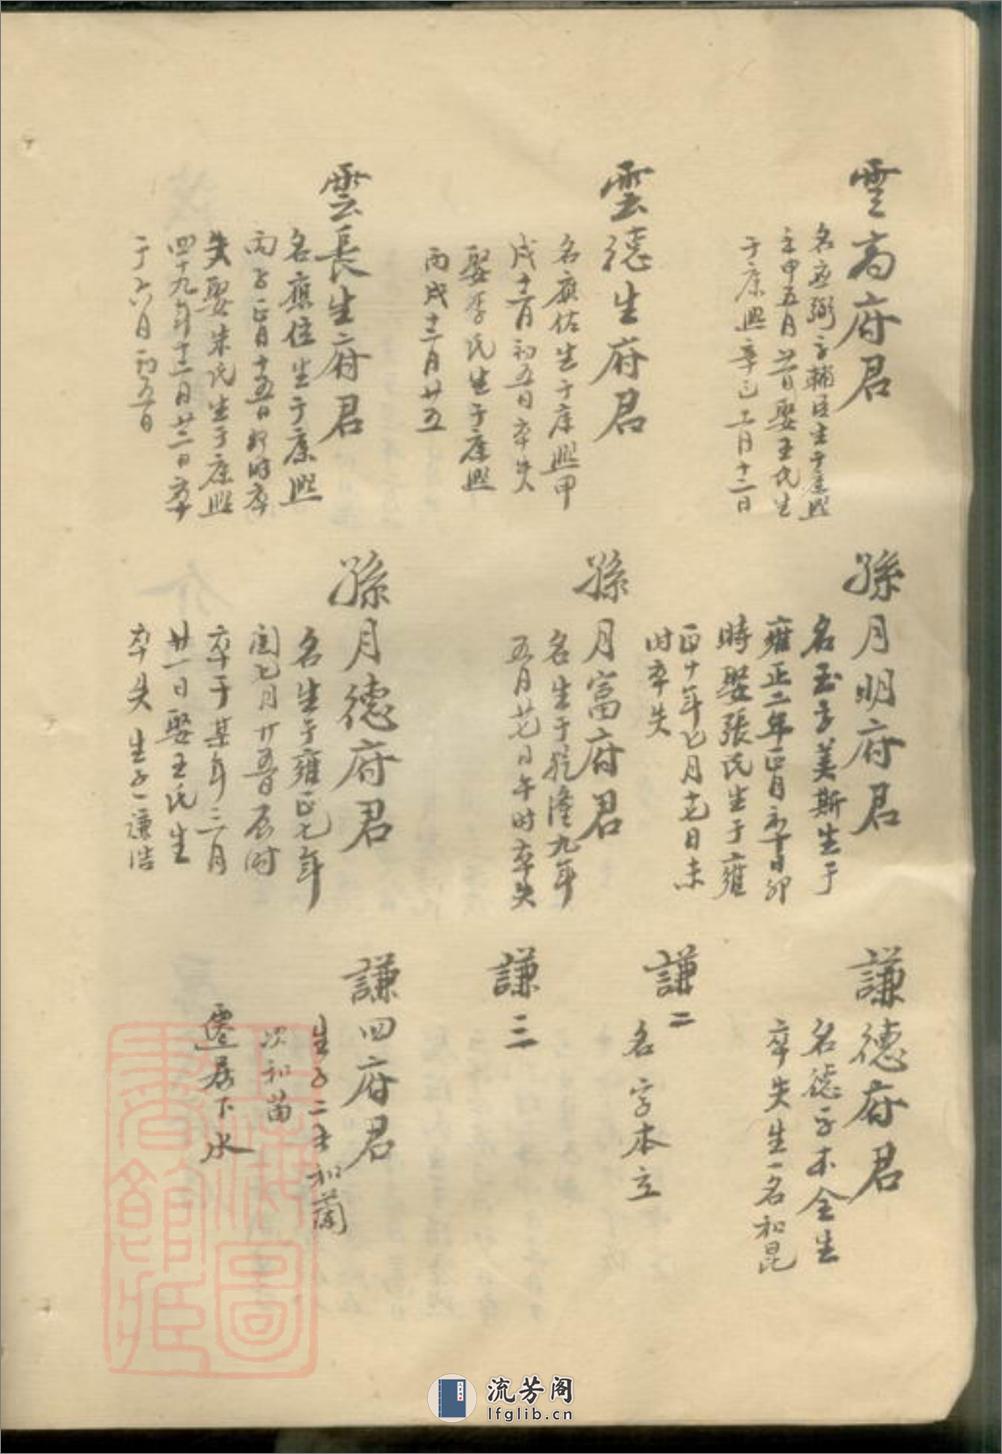 雲高府君
名应弼字輔臣生于康熙
壬申五月廿日娶王氏生
于康熙辛巳七月十二日
雲德生府君
名应佑生于康熙甲
戌十二月初五日卒失
娶李氏生于康熙
丙戌十二月廿五
雲長生府君
名應位生于康熙
丙子正月十五日卯时卒
失娶朱氏生于康熙
四十九年十二月廿二日卒
于六月初五日
孫月明府君
名玉字美斯生于
雍正二年正月初十日卯
時娶張氏生于雍
正十年七月十七日未
时卒失
孫月富府君
名生于乾隆九年
五月廿七日午时卒失
孫月德府君
名生于雍正七年
闰七月廿五日辰时
卒于某年三月
廿一日娶王氏生
卒失生子一谦浩
謙德府君
名德字本全生
卒失生一名和昆
謙二
名字本立
謙三
謙四府君
生子二長和蘭
次和苗
遷居下水
上海圖書館藏
流芳阁
lfglib.cn